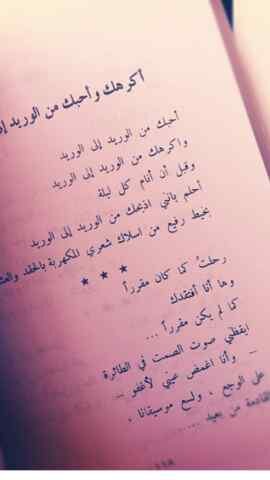 أكرهك وأحبك من الوريد
أحبك من الوريد إلى الوريد
واكرهك من الوريد إلى الوريد
وقبل أن أنام كل ليلة
أحلم بانني اذبحك من الوريد إلى الوريد
بخيط رفيع من اسلاك شعري المكهربة بالحقد
★ ★ ★
رحلتُ كما كان مقرراً
وها أنا أفتقدك
كما لم يكن مقرراً ...
ايقظني صوت الصمت في الطائرة
– وأنا اغمض عيني لأغفو –
على الوجع ، ولسع موسيقانا ،
القادمة من بعيد .....